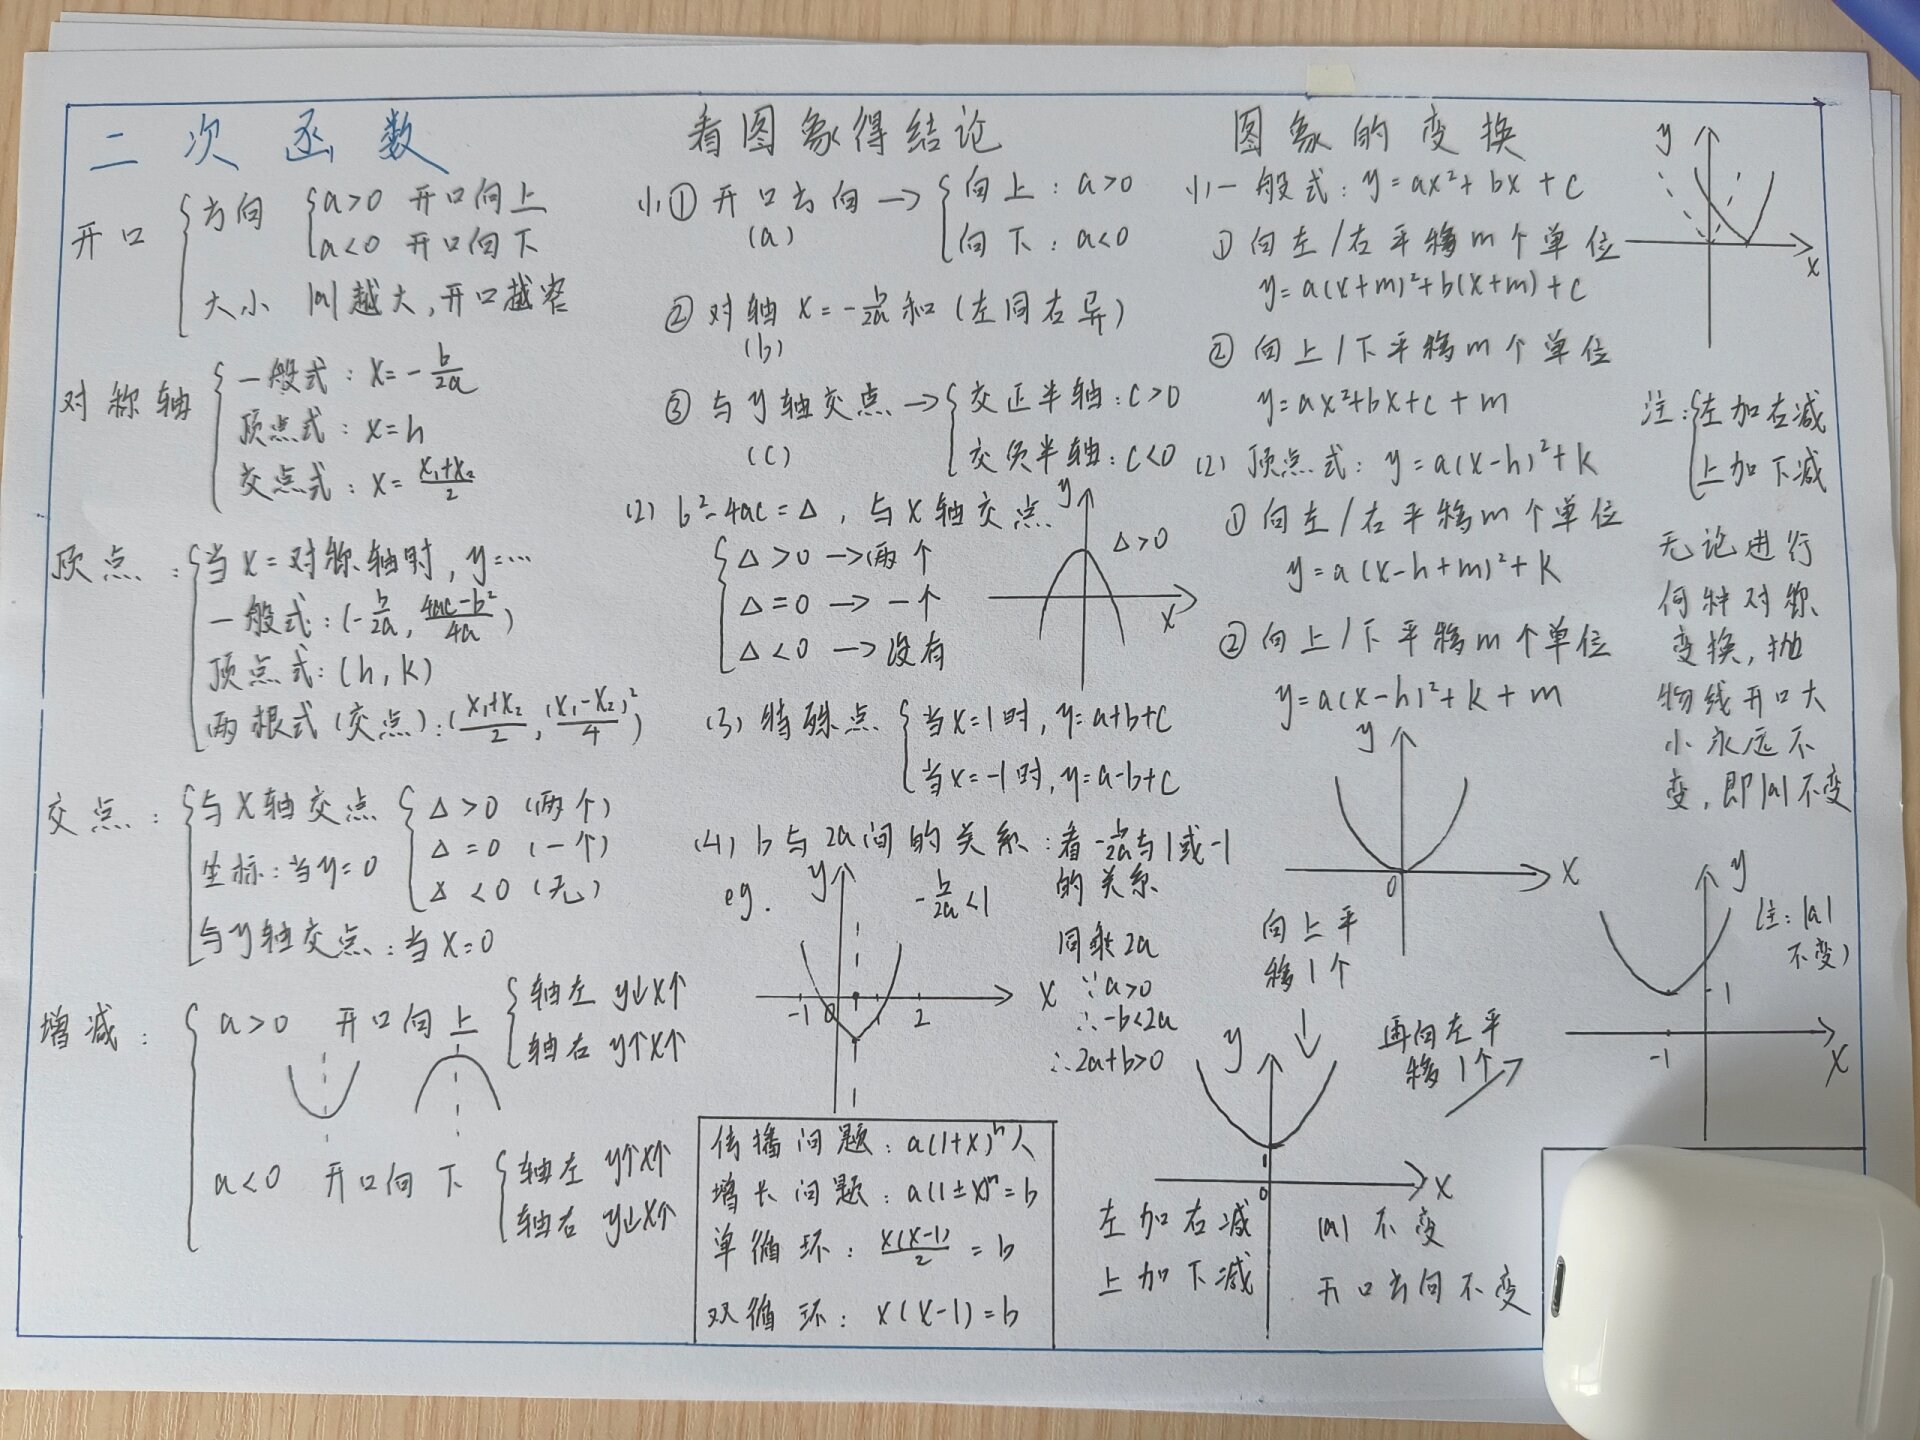 二次函数
开口
方向
a>0 开口向上
a<0 开口向下
大小 |a|越大,开口越窄
对称轴
一般式: x=-b/2a
顶点式: x=h
交点式: x=(x₁+x₂)/2
顶点:
当x=对称轴时, y=…
一般式:(-b/2a, (4ac-b²)/4a)
顶点式:(h,k)
两根式(交点):((x₁+x₂)/2, (x₁-x₂)²/4)
交点:
与x轴交点
Δ>0 (两个)
坐标:当y=0
Δ=0 (一个)
Δ<0 (无)
与y轴交点:当x=0
增减:
a>0 开口向上
轴左 y↓x↑
轴右 y↑x↑
a<0 开口向下
轴左 y↑x↑
轴右 y↓x↑
看图象得结论
(1)①开口方向→
(a)
向上: a>0
向下: a<0
②对轴 x=-b/2a和(左同右异)
(b)
③与y轴交点→
(c)
交正半轴:c>0
交负半轴:c<0
(2) b²-4ac=Δ, 与x轴交点
Δ>0→两个
Δ=0→一个
Δ<0→没有
y
Δ>0
x
(3)特殊点
当x=1时,y=a+b+c
当x=-1时,y=a-b+c
(4) b与2a间的关系:看-b/2a与1或-1
的关系
eg.
y
-b/2a<1
-1 0 1 2 x
同乘2a
∵a>0
∴-b<2a
∴2a+b>0
传播问题: a(1+x)ⁿ人
增长问题: a(1±x)ⁿ=b
单循环: x(x-1)/2=b
双循环: x(x-1)=b
图象的变换
(1)一般式: y=ax²+bx+c
①向左/右平移m个单位
y=a(x+m)²+b(x+m)+c
②向上/下平移m个单位
y=ax²+bx+c+m
(2) 顶点式: y=a(x-h)²+k
①向左/右平移m个单位
y=a(x-h+m)²+k
②向上/下平移m个单位
y=a(x-h)²+k+m
y
0
x
向上平
移1个
y
1
0
x
再向左平
移1个
左加右减
上加下减
|a|不变
开口方向不变
y
x
注:
左加右减
上加下减
无论进行
何种对称
变换,抛
物线开口大
小永远不
变,即|a|不变
y
(注:|a|
不变)
1
-1
x